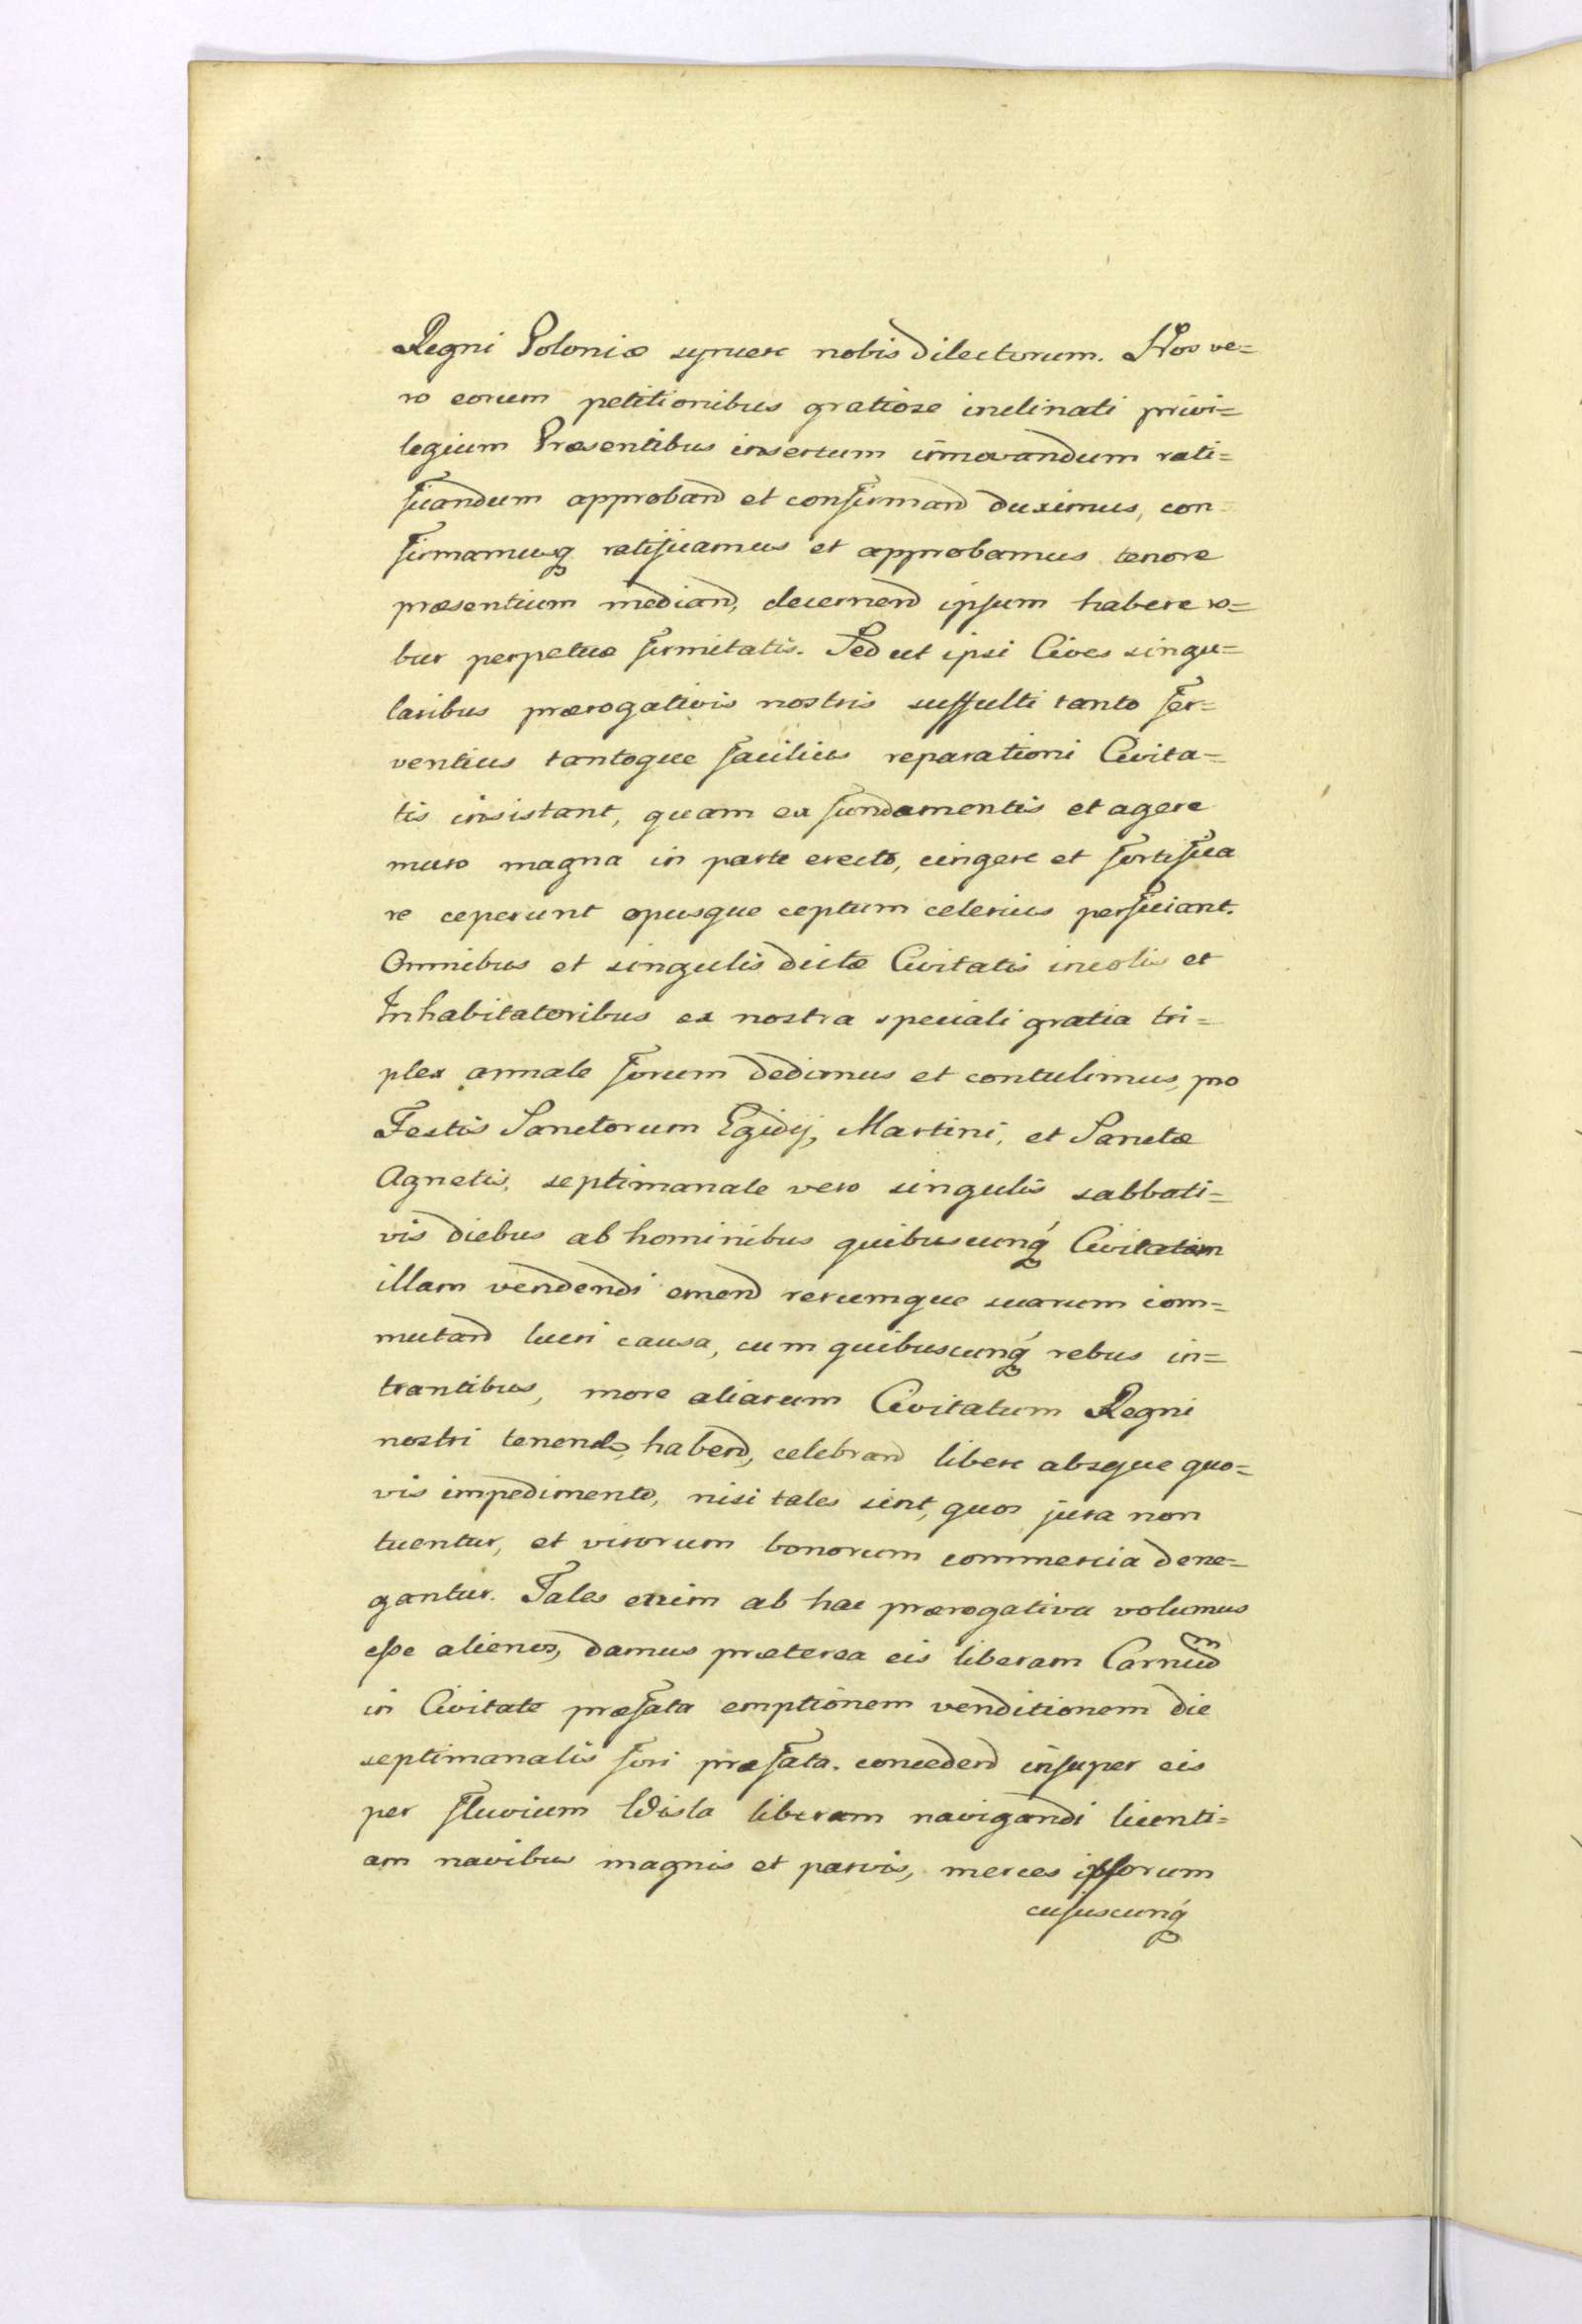 Regni Poloniæ syncere nobis dilectorum. Nos ve=
ro eorum petitionibus gratiose inclinati privi=
legium Præsentibus insertum innovandum rati=
ficandum approband et confirmand duximus, con=
firmamusq ratificamus et approbamus tenore
præsentium mediand, decernend ipsum habere ro=
bur perpetuæ firmitatis. Sed ut ipsi Cives singu=
laribus prærogativis nostris suffulti tanto fer=
ventius tantoque facilius reparationi Civita=
tis insistant, quam ex fundamentis et agere
muro magna in parte erecto, cingere et fortifica
re ceperunt opusque ceptum celerius perficiant.
Omnibus et singulis dictæ Civitatis incolis et
Inhabitatoribus ex nostra speciali gratia tri=
plex annale forum dedimus et contulimus, pro
Festis Sanctorum Egidij, Martini, et Sanctæ
Agnetis, septimanale vero singulis sabbati=
vis diebus ab hominibus quibuscunq Civitatem
illam vendendi emend rerumque suarum com=
mutand lucri causa, cum quibuscunq rebus in=
trantibus, more aliarum Civitatum Regni
nostri tenend, habend, celebrand libere absque quo=
vis impedimento, nisi tales sint, quos jura non
tuentur, et virorum bonorum commercia dene=
gantur. Tales enim ab hac prærogativa volumus
esse alienos, damus præterea eis liberam Carnium
in Civitate præfata emptionem venditionem die
septimanalis fori præfata. concedend insuper eis
per fluvium Wisla liberam navigandi licenti=
am navibus magnis et parvis, merces ipsorum
cujuscunq